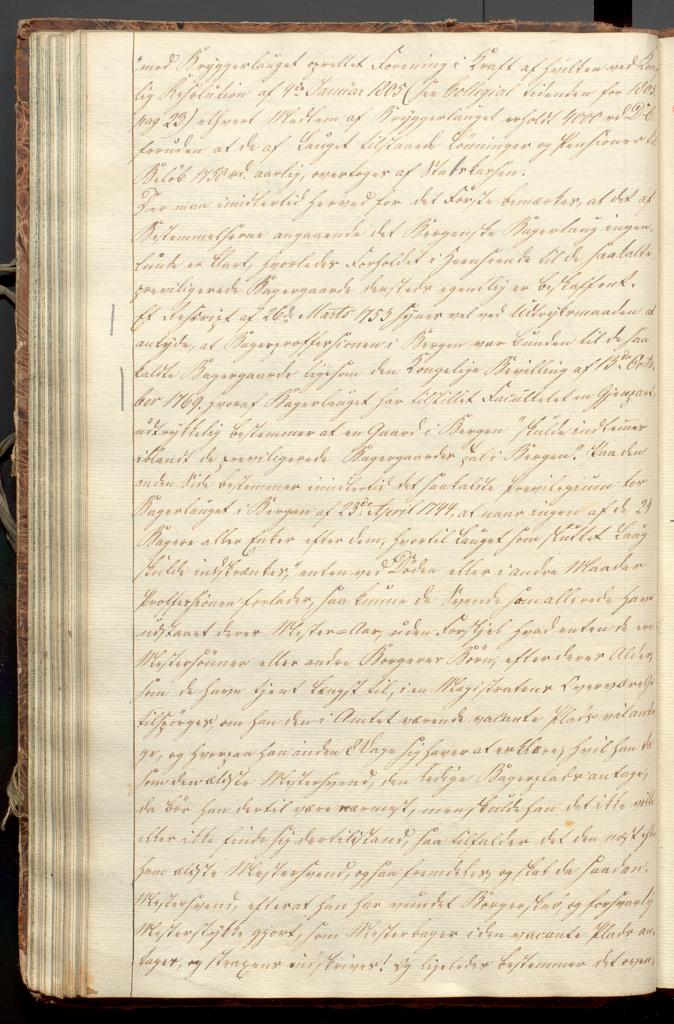 "med Bryggerlauget oprettet Forening i Kraft af hvilken ved Kon
lig Resolution af 4de Januar 1805 (see Collegial tidenden for 1805
pag 23) ethvert Medlem af Bryggerlauget erholdt 4000 rd D. C.
foruden at de af Lauget tilstaaede Lønninger og Pensioner til
Beløb 1750 rd. aarlig, overtoges af Statskassen.
Der maa imidlertid herved for det Første bemærkes, at det af
Bestemmelserne angaaende det Bergenske Bagerlaug ingen
lunde er klart, hvorledes Forholdet i Henseende til de saakaldte
previligerede Bagergaarde dersteds egentlig er beskaffent.
Et Rescript af 26de Marts 1753 synes vel ved Udtryksmaaden at
antyde, at Bagerproffessionen i Bergen var bunden til de saa
kaldte Bagergaarde ligesom den Kongelige Bevilling af 13de Octo
ber 1769, hvoraf Bagerlauget har tilstillet Facultetet en Gjenpart,
udtrykkelig bestemmer at en Gaard i Bergen "skulde indlemmes
iblandt de previligerede Bagergaardes Tal i Bergen". Paa den
anden Side bestemmer imidlertid det saakaldte Previlegium for
Bagerlauget i Bergen af 23de April 1744 at naar nogen af de 24
Bagere eller Enker efter dem, hvortil Lauget som sluttet Laug
skulde indskrænkes, "enten ved Døden eller i andre Maader
Proffessionen forlader, saa kunne de Svende som allerede have
udstaaet deres Mester-Aar, uden Forskjel hvad enten de ere
Mestersønner eller andre Borgeres Børn, efter deres Alder,
som de have tjent længst til, i en Magistratens Overværelse
tilspørges, om han den i Amtet værende vacante Plads vil anta
ge, og hvorpaa han inden 8 Dage sig haver at erklære; hvil han da
som den ældste Mestersvend, den ledige Bagerplads antage,
da bør han dertil være nærmest, men skulde han det ikke ville
eller ikke finde sig dertil istand, saa tilfalder det den næst efter
ham ældste Mestersvend, og saa fremdeles, og skal da saadan
Mestersvend, efterat han har vundet Borgerskab, og forsvarlig
Mesterstykke gjort, som Mesterbager i den vacante Plads an
tages, og strax ens indskrives! Og ligeledes bestemmer det oven